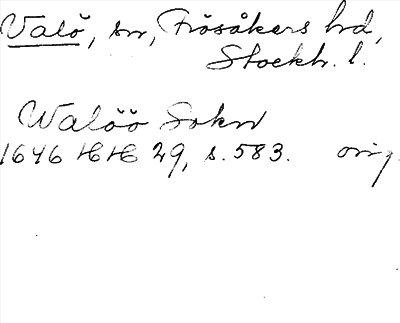 Valö, sn, Frösåkers hd,
Stockh. l.
Walöö Sokn
1646 HH 29, s. 583. orig.